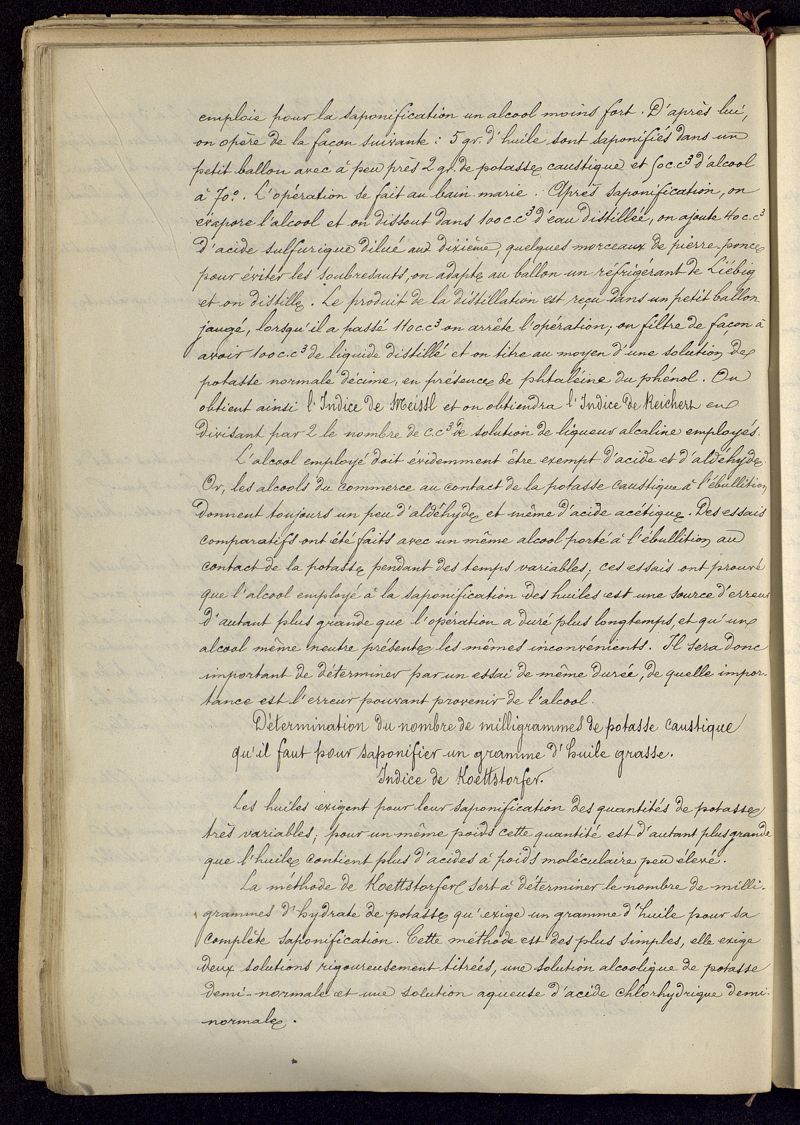 emploie pour la saponification un alcool moins fort. D'après lui,
on opère de la façon suivante : 5 gr. d'huile sont saponifiés dans un
petit ballon avec à peu près 2 gr. de potasse caustique et 50 c.c³ d'alcool
à 70°. L'opération se fait au bain marie. Après saponification, on
évapore l'alcool et on dissout dans 100 c.c³ d'eau distillée, on ajoute 40 c.c³
d'acide sulfurique dilué aux dixième, quelques morceaux de pierre-ponce
pour éviter les soubresauts, on adapte au ballon un réfrigérant de Liébig
et on distille. Le produit de la distillation est reçu dans un petit ballon
jaugé, lorsqu'il a passé 110 cc³ on arrête l'opération; on filtre de façon à
avoir 100 c.c³ de liquide distillé et on titre au moyen d'une solution de
potasse normale décime, en présence de phtaléine du phénol. On
obtient ainsi l'Indice de Meissl et on obtiendra l'Indice de Reichert en
divisant par 2 le nombre de c.c³ de solution de liqueur alcaline employés.
L'alcool employé doit évidemment être exempt d'acide et d'aldéhyde.
Or, les alcools du commerce au contact de la potasse caustique à l'ébullition
donnent toujours un peu d'aldéhyde et même d'acide acétique. Des essais
comparatifs ont été faits avec un même alcool porté à l'ébullition au
contact de la potasse pendant des temps variables; ces essais ont prouvé
que l'alcool employé à la saponification des huiles est une source d'erreur
d'autant plus grande que l'opération a duré plus longtemps, et qu'un
alcool même neutre présente les mêmes inconvénients. Il sera donc
important de déterminer par un essai de même durée, de quelle impor-
tance est l'erreur pouvant provenir de l'alcool.
Détermination du nombre de milligrammes de potasse caustique
qu'il faut pour saponifier un gramme d'huile grasse.
Indice de Koettstorfer.
Les huiles exigent pour leur saponification des quantités de potasse
très variables; pour un même poids cette quantité est d'autant plus grande
que l'huile contient plus d'acides à poids moléculaire peu élevé.
La méthode de Koettstorfer sert à déterminer le nombre de milli-
grammes d'hydrate de potasse qu'exige un gramme d'huile pour sa
complète saponification. Cette méthode est des plus simples, elle exige
deux solutions rigoureusement titrées, une solution alcoolique de potasse
demi-normale et une solution aqueuse d'acide chlorhydrique demi-
normale.